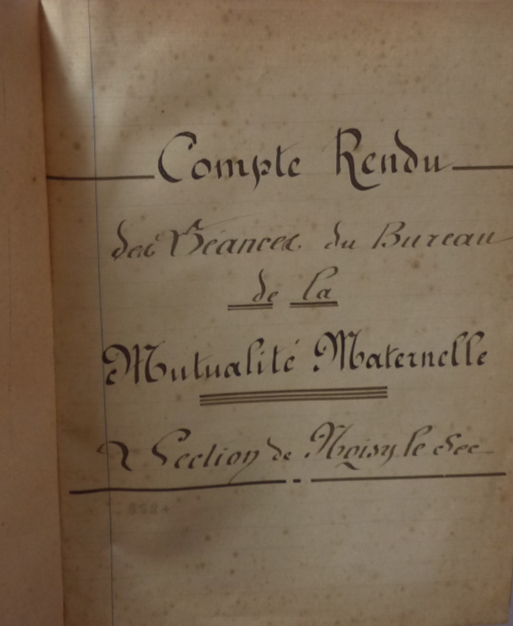 Compte Rendu
des Séances du Bureau
de la
Mutualité Maternelle
Section de Noisy le Sec